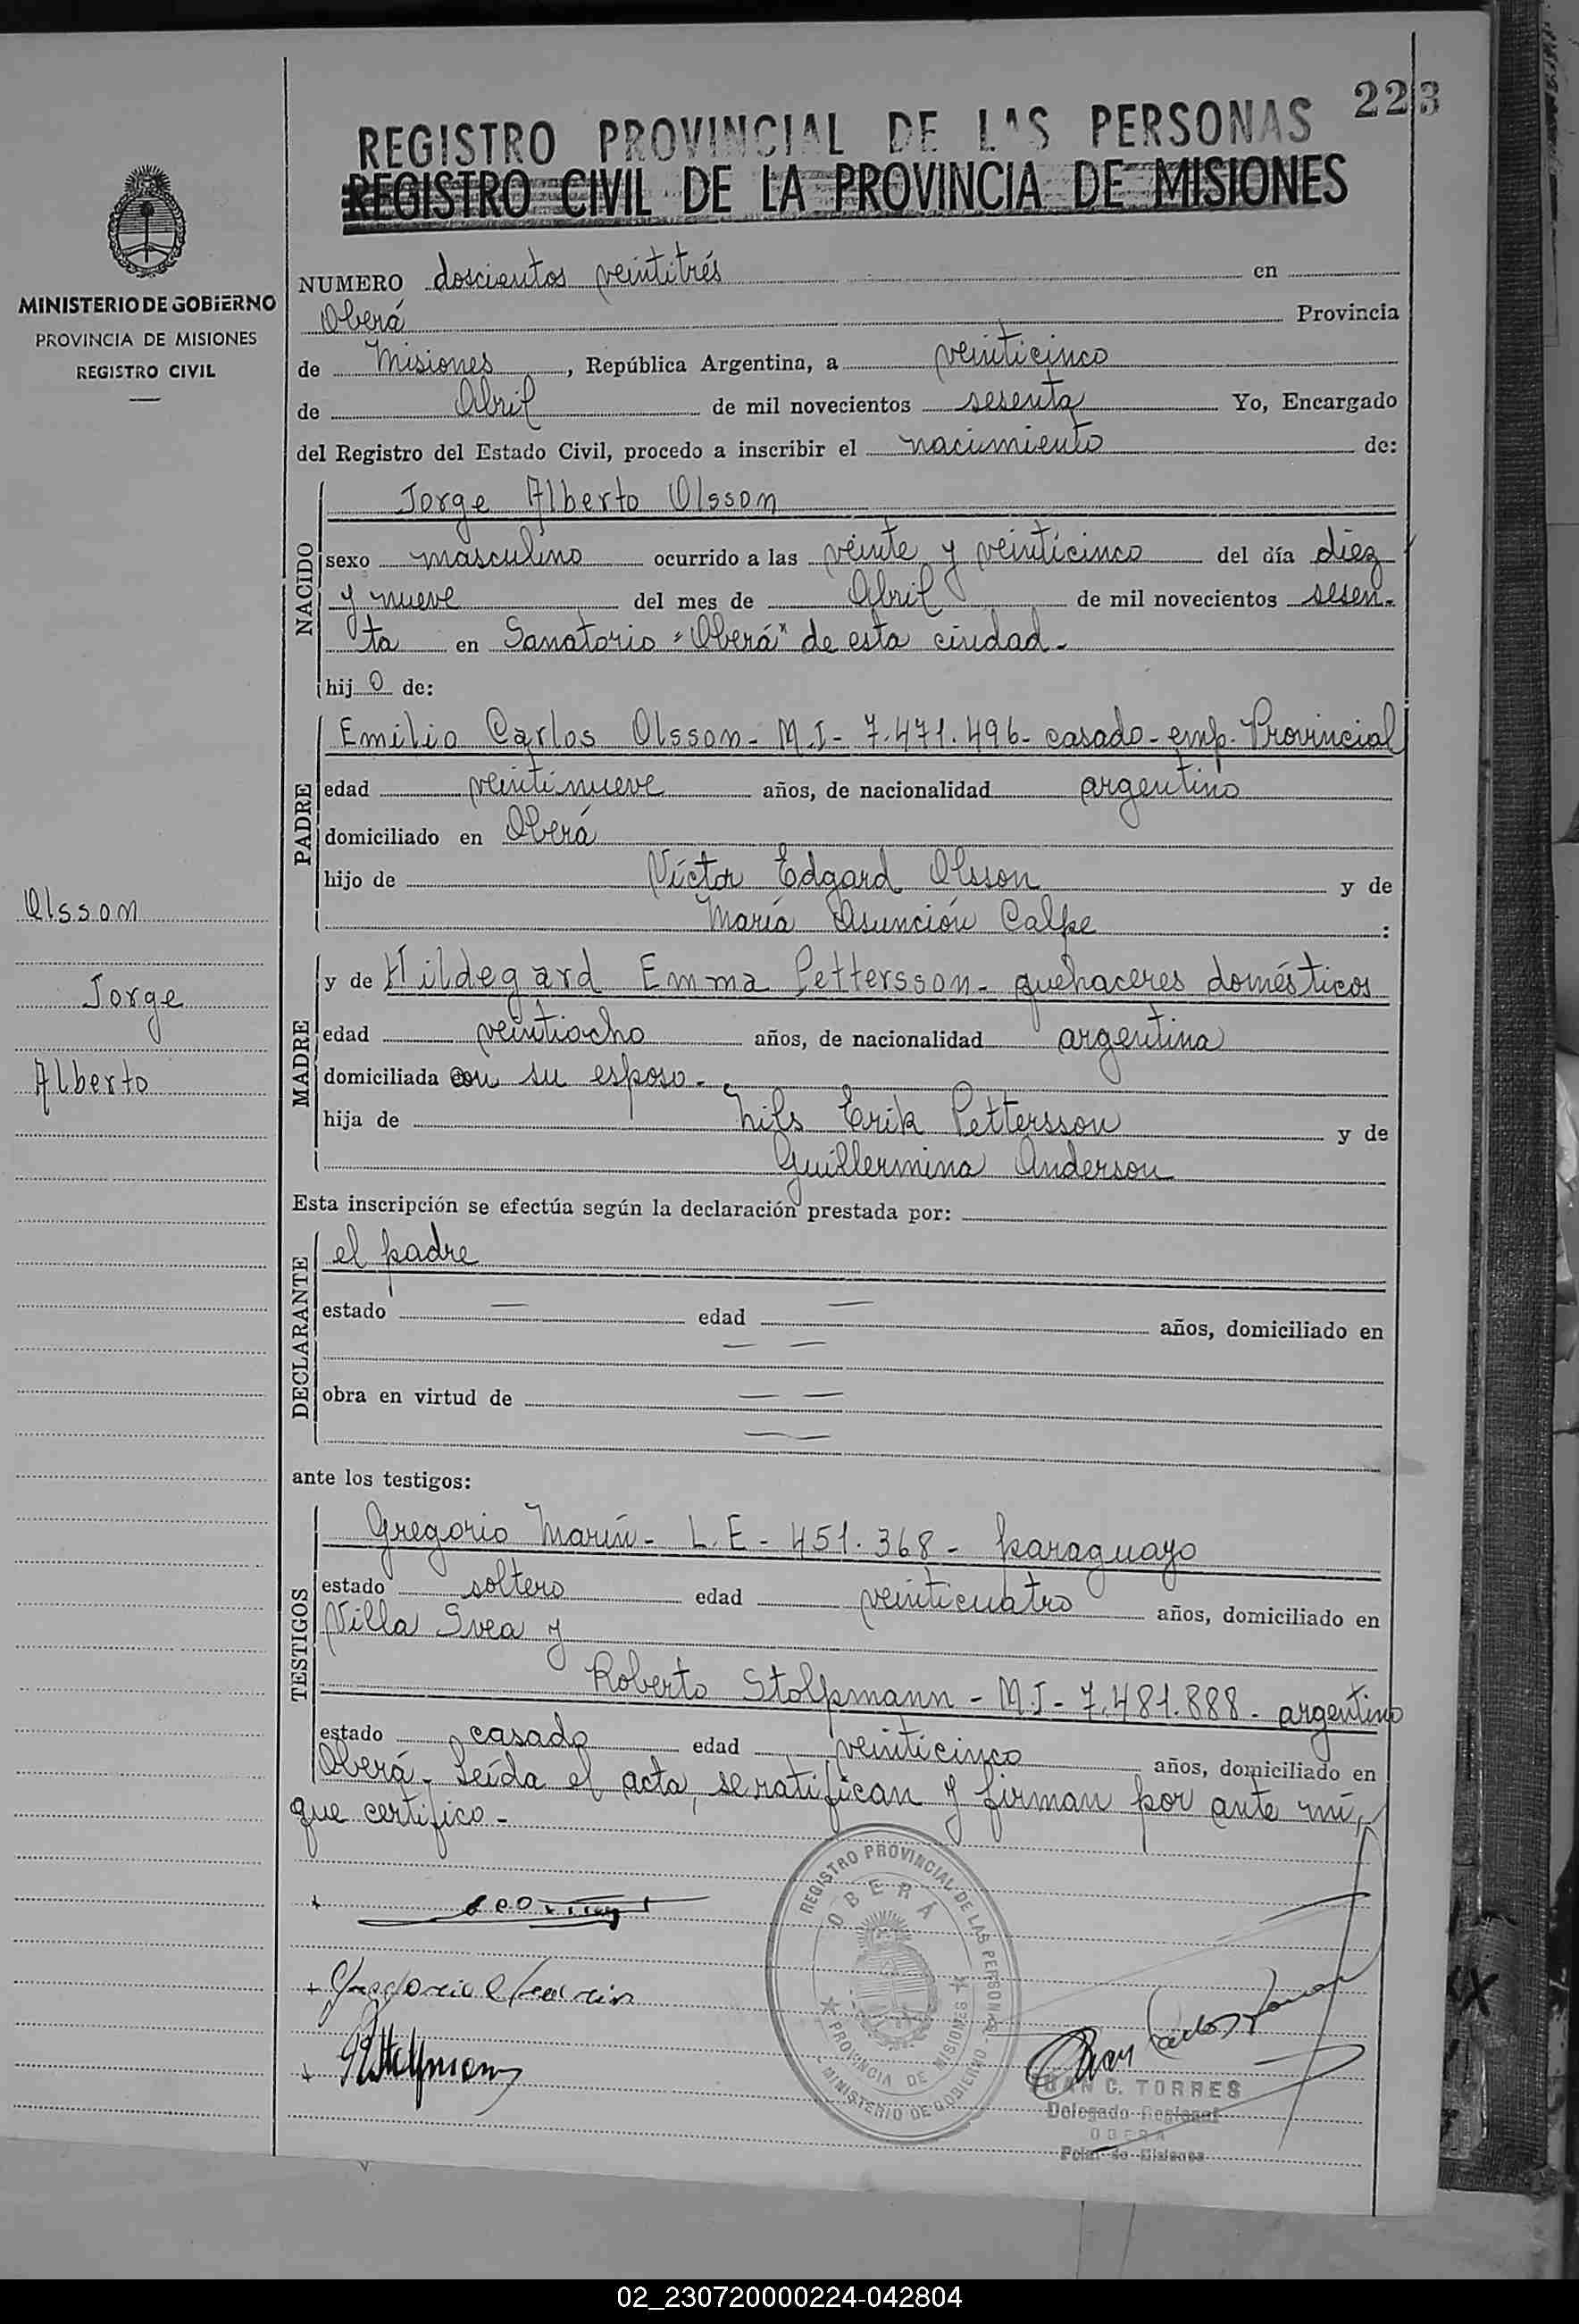 223
REGISTRO PROVINCIAL DE LAS PERSONAS
REGISTRO CIVIL DE LA PROVINCIA DE MISIONES
MINISTERIO DE GOBIERNO
PROVINCIA DE MISIONES
REGISTRO CIVIL
NUMERO doscientos veintitrés en
Oberá Provincia
de Misiones, República Argentina, a veinticinco
de Abril de mil novecientos sesenta Yo, Encargado
del Registro del Estado Civil, procedo a inscribir el nacimiento de:
NACIDO
Jorge Alberto Olsson
sexo masculino ocurrido a las veinte y veinticinco del día diez
y nueve del mes de Abril de mil novecientos sesen-
ta en Sanatorio "Oberá" de esta ciudad-
hijo de:
PADRE
Emilio Carlos Olsson- M.I- 7.471.496- casado- emp. Provincial
edad veintinueve años, de nacionalidad argentino
domiciliado en Oberá
hijo de Víctor Edgard Olsson y de
María Asunción Calpe :
Olsson
Jorge
Alberto
MADRE
y de Hildegard Emma Pettersson- quehaceres domésticos
edad veintiocho años, de nacionalidad argentina
domiciliada con su esposo-
hija de Nils Erik Pettersson y de
Guillermina Anderson
Esta inscripción se efectúa según la declaración prestada por:
DECLARANTE
el padre
estado — edad — años, domiciliado en
— —
obra en virtud de — —
— —
ante los testigos:
TESTIGOS
Gregorio Marín- L.E- 451.368- paraguayo
estado soltero edad veinticuatro años, domiciliado en
Villa Svea y
Roberto Stolpmann- M.I- 7.481.888- argentino
estado casado edad veinticinco años, domiciliado en
Oberá- Leída el acta, se ratifican y firman por ante mí,
que certifico-
REGISTRO PROVINCIAL DE LAS PERSONAS
OBERÁ
PROVINCIA DE MISIONES
MINISTERIO DE GOBIERNO
Gregorio Marin
Juan Carlos Torres
JUAN C. TORRES
Delegado Regional
OBERA
de Misiones
02_230720000224-042804